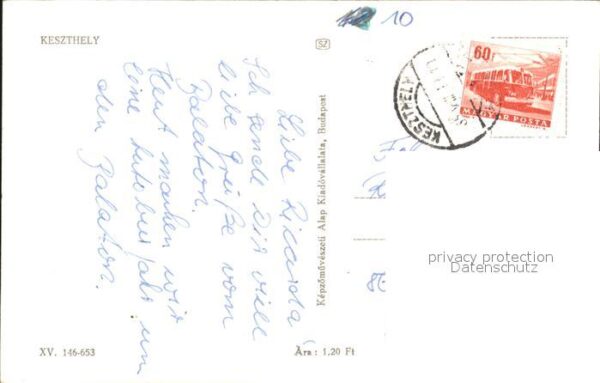 KESZTHELY
SZ
10
60f
MAGYAR POSTA
KESZTHELY
Liebe Ricarda!
Ich sende Dir viele
liebe Grüße vom
Balaton.
Heut machen wir
eine Autobusfahrt um
den Balaton.
Képzőművészeti Alap Kiadóvállalata, Budapest
privacy protection
Datenschutz
XV. 146-653
Ára : 1,20 Ft